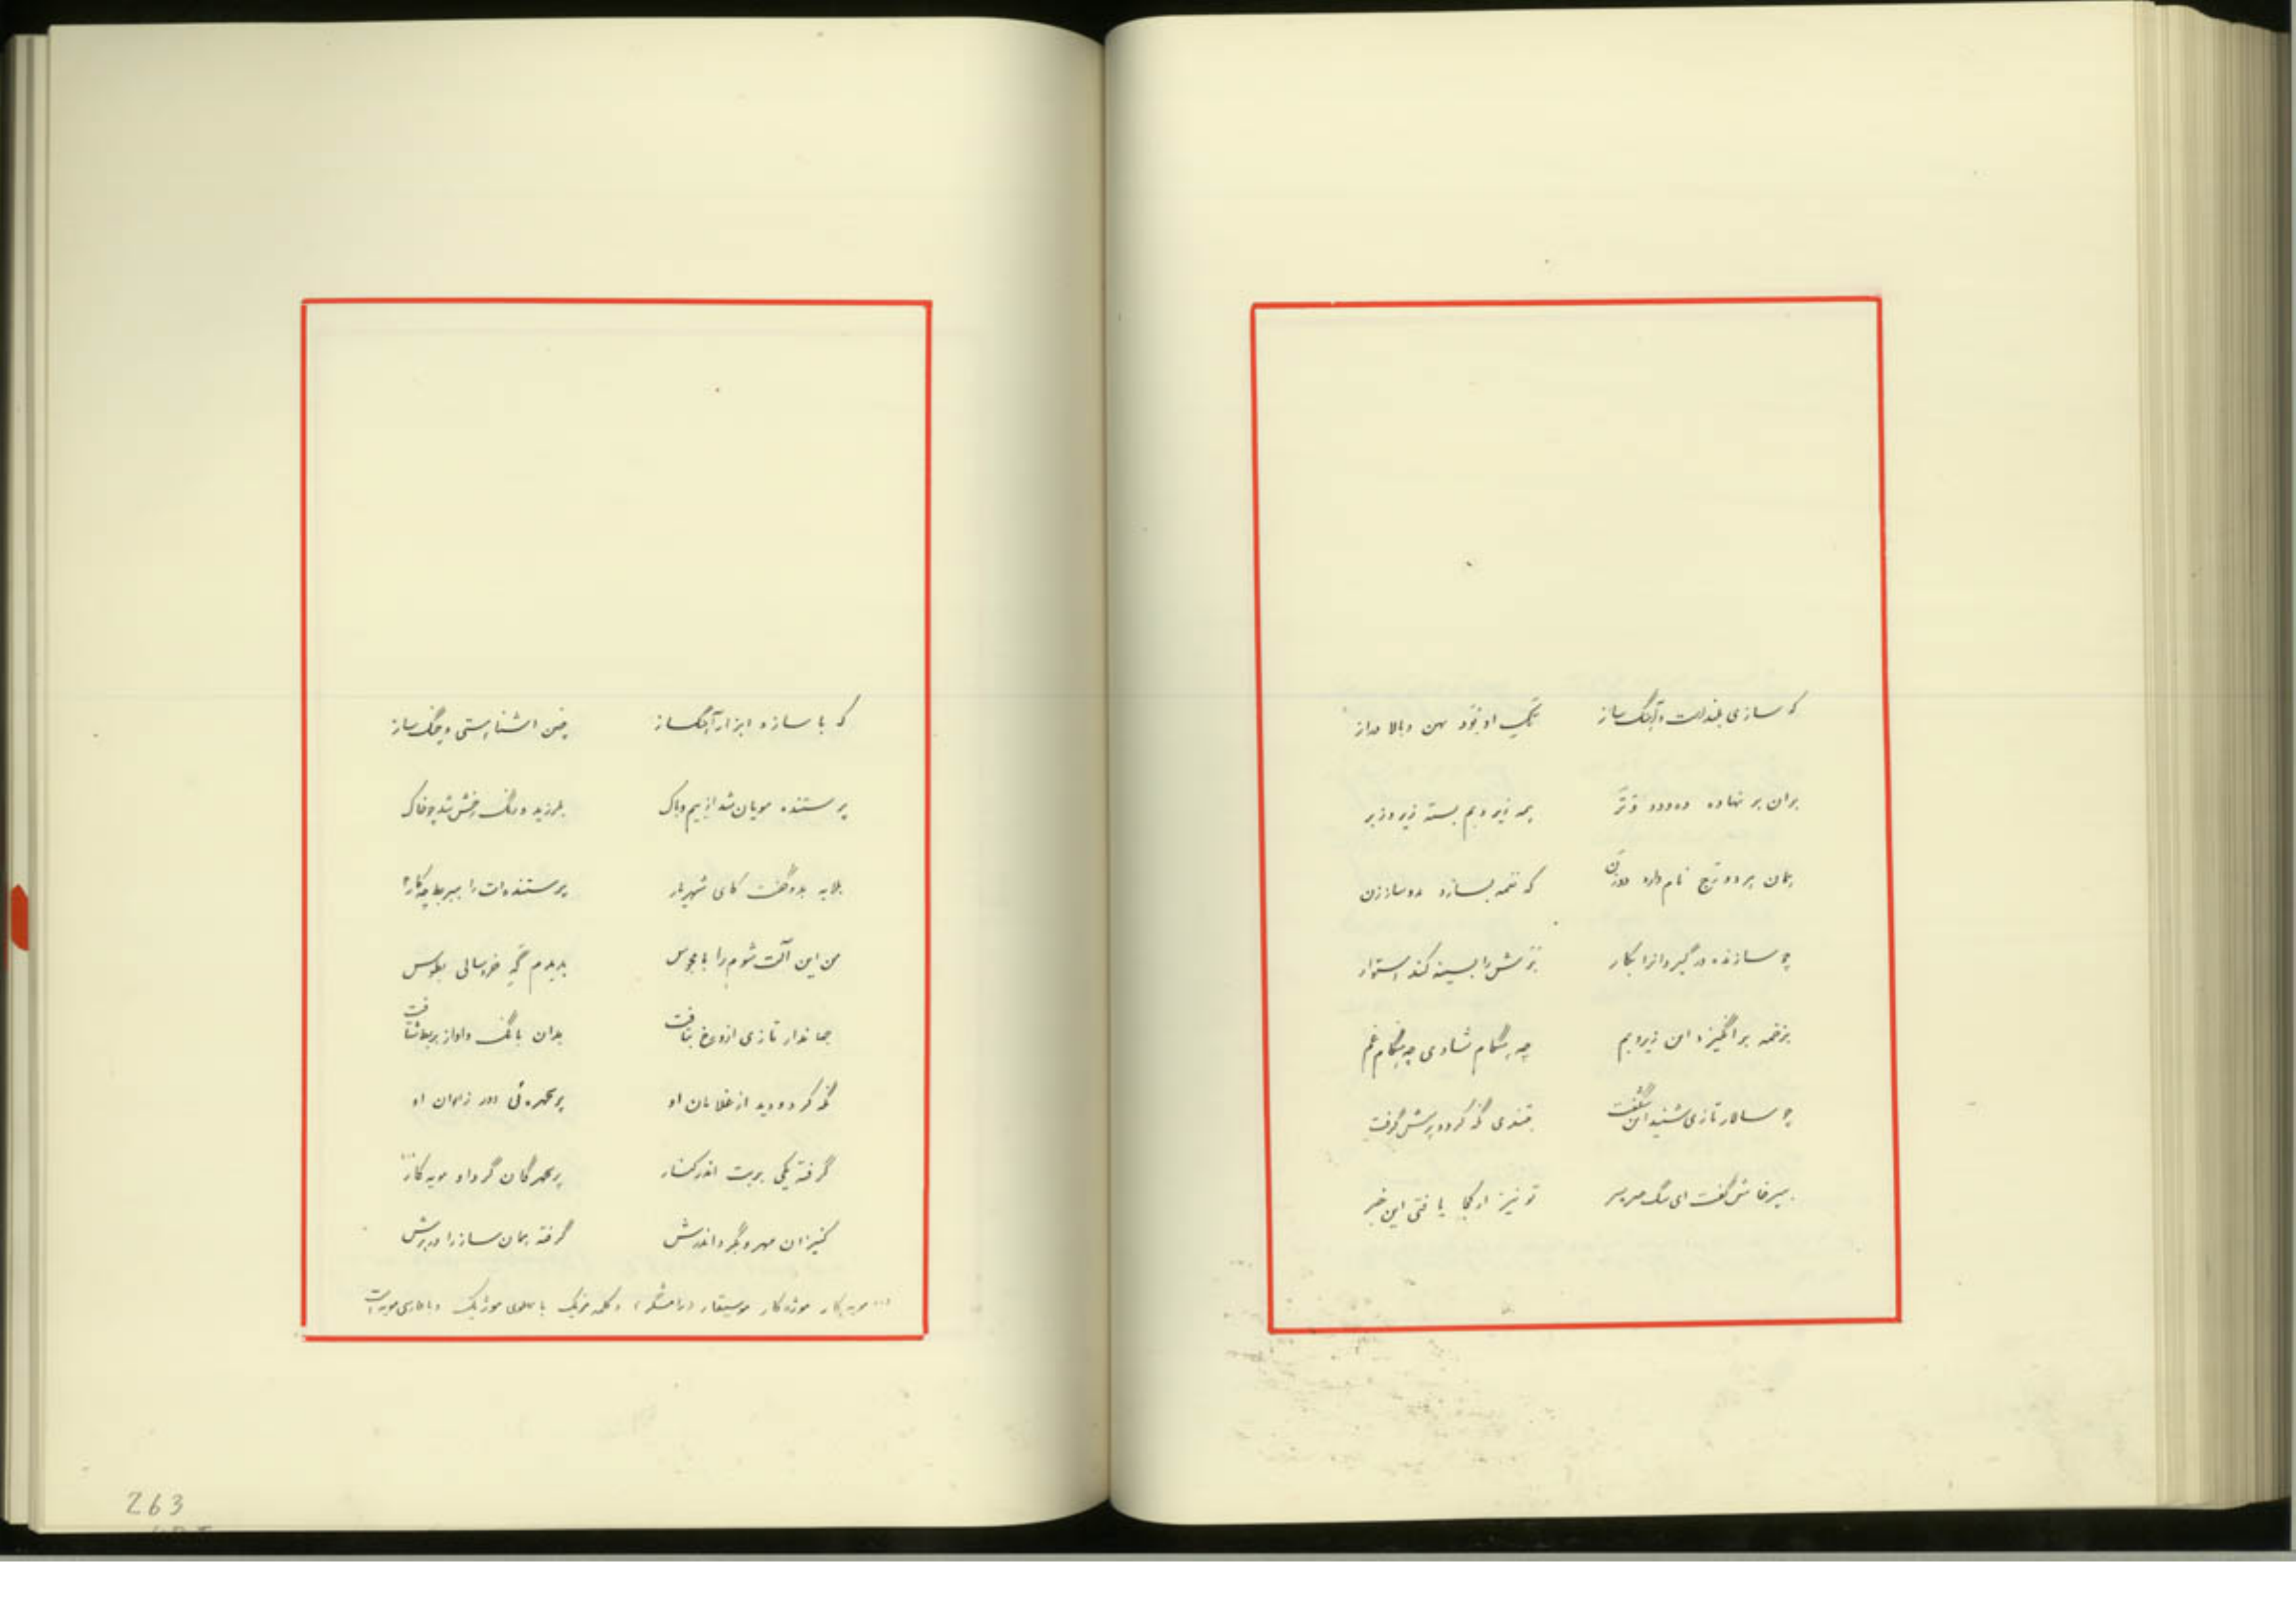 که سازی بلند است و آهنگ ساز تک او بود پهن و بالا دراز
بران بر نهاده ده و دو وتر همه زیر و بم بسته زیر و زبر
همان پرده و ترج نام دارد وزن که نغمه بسازد بدو ساززن
چو سازنده در گیرد او را بکار برش را بسینه کند استوار
بزخمه برانگیزد این زیر و بم چه هنگام شادی چه هنگام غم
چو سالار تازی شنید این شگفت بتندی نگه کرد و پرسش گرفت
بپرخاش گفت ای سگ تو نیز از کجا یافتی این خبر
که با ساز و ابزار آهنگ ساز چنین آشنایستی و چنگ ساز
پرستنده مویان شد از بیم و باک بلرزید و رنگ رخش شد چو خاک
بلابه بدو گفت کای شهریار پرستنده‌ات را ببربط چه کار؟
من این آلت شوم را با مجوس بدیدم گه خردسالی بطوس
جهاندار تازی ازو رخ بتافت بدان بانگ و آواز بربط شتافت
نگه کرد و دید از غلامان او پریچهره‌ئی در زاوان او
گرفته یکی بربت اندر کنار پریچهرگان گرد او مویه‌کار...
کنیزان مهرو بگرد اندرش گرفته همان ساز را در برش
... مویه‌کار موزه‌کار موسیقار (رامشگر) و کلمه موزیک با پهلوی موژیک و با فارسی مویه است
263